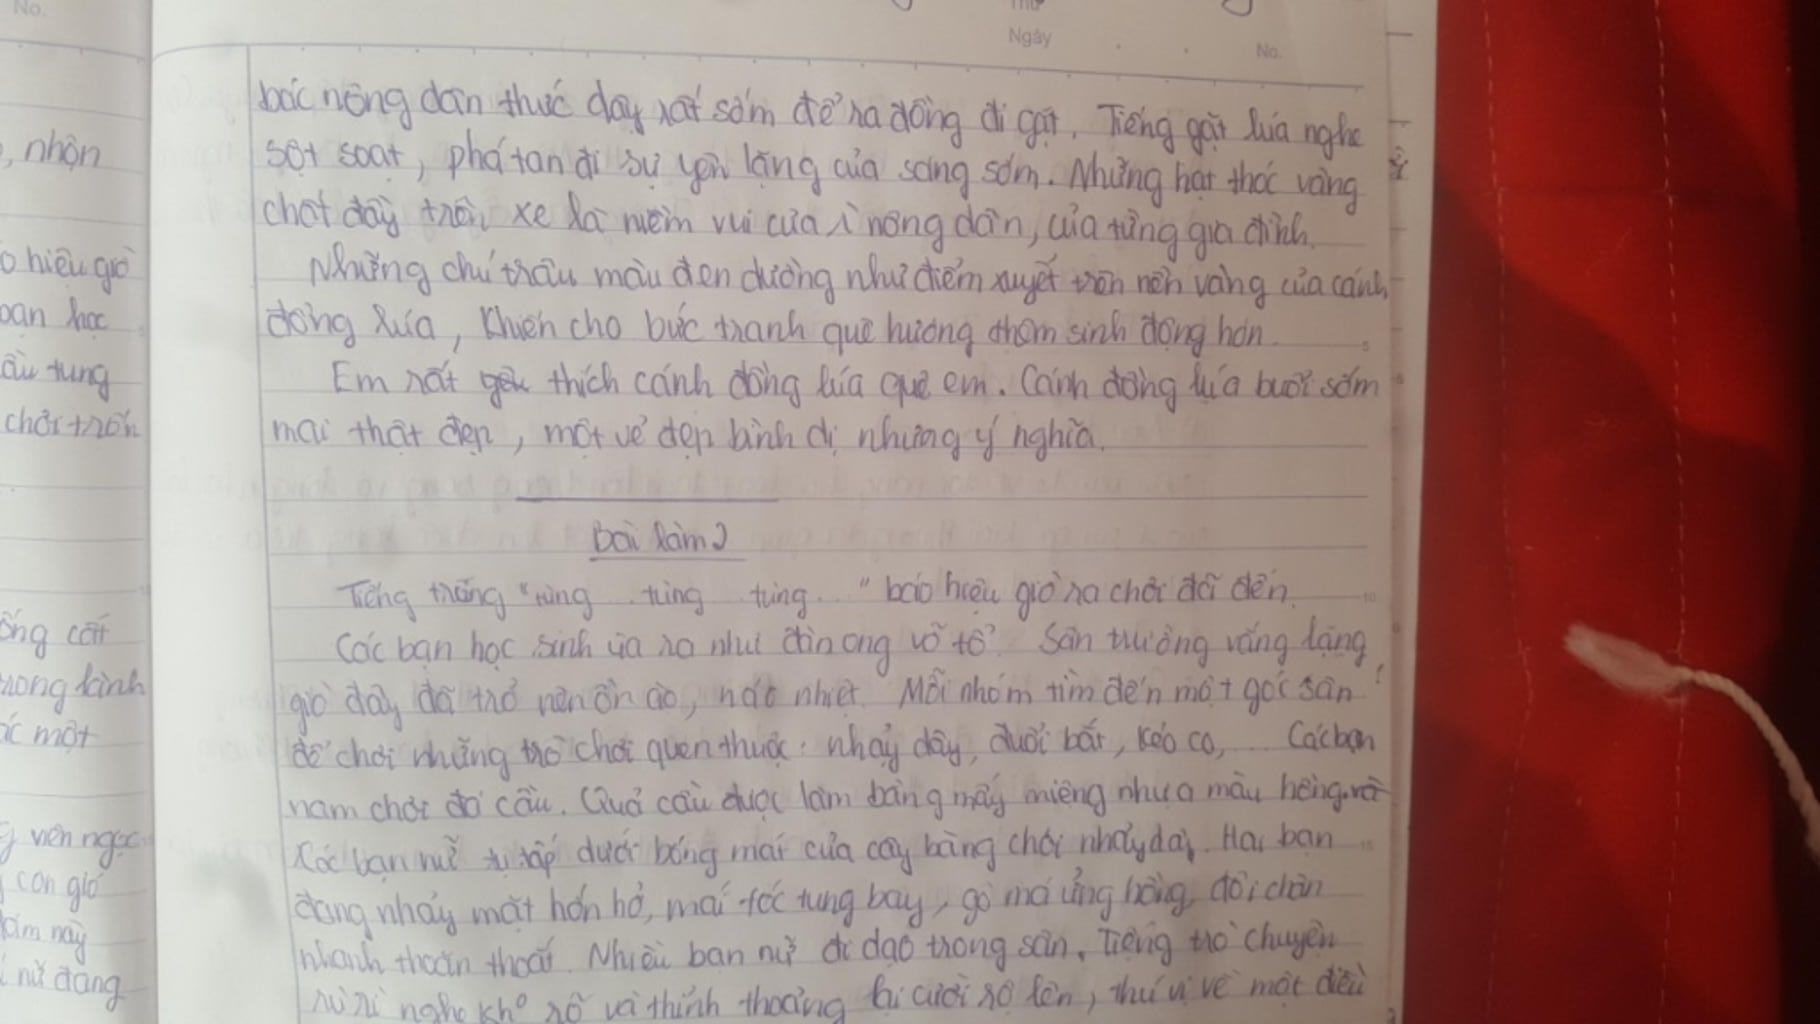 No.
Thứ
Ngày
No.
, nhộn
o hiệu giờ
bạn học
ầu tung
chơi trốn
ống cát
rong lành
ác một
g viên ngọc
g con gió
năm này
nữ đang
bác nông dân thức dây rất sớm để ra đồng đi gặt. Tiếng gặt lúa nghe
sột soạt, phá tan đi sự yên lặng của sáng sớm. Những hạt thóc vàng
chất đầy trên xe là niềm vui của nông dân, của từng gia đình.
Những chú trâu màu đen dường như điểm xuyết trên nền vàng của cánh
đồng lúa, khiến cho bức tranh quê hương thêm sinh động hơn.
Em rất thích cánh đồng lúa quê em. Cánh đồng lúa buổi sớm
mai thật đẹp, một vẻ đẹp bình dị nhưng ý nghĩa.
Bài làm 2
Tiếng trống "tùng... tùng... tùng..." báo hiệu giờ ra chơi đã đến.
Các bạn học sinh ùa ra như đàn ong vỡ tổ. Sân trường vắng lặng
giờ đây đã trở nên ồn ào, náo nhiệt. Mỗi nhóm tìm đến một góc sân
để chơi những trò chơi quen thuộc: nhảy dây, đuổi bắt, kéo co,... Các bạn
nam chơi đá cầu. Quả cầu được làm bằng mấy miếng nhựa màu hồng.
Các bạn nữ tụ tập dưới bóng mát của cây bàng chơi nhảy dây. Hai bạn
đang nhảy mặt hớn hở, mái tóc tung bay, gò má ửng hồng, đôi chân
nhanh thoăn thoắt. Nhiều bạn nữ đi dạo trong sân. Tiếng trò chuyện
rù rì nghe khó rõ và thỉnh thoảng lại cười rộ lên, thú vị về một điều